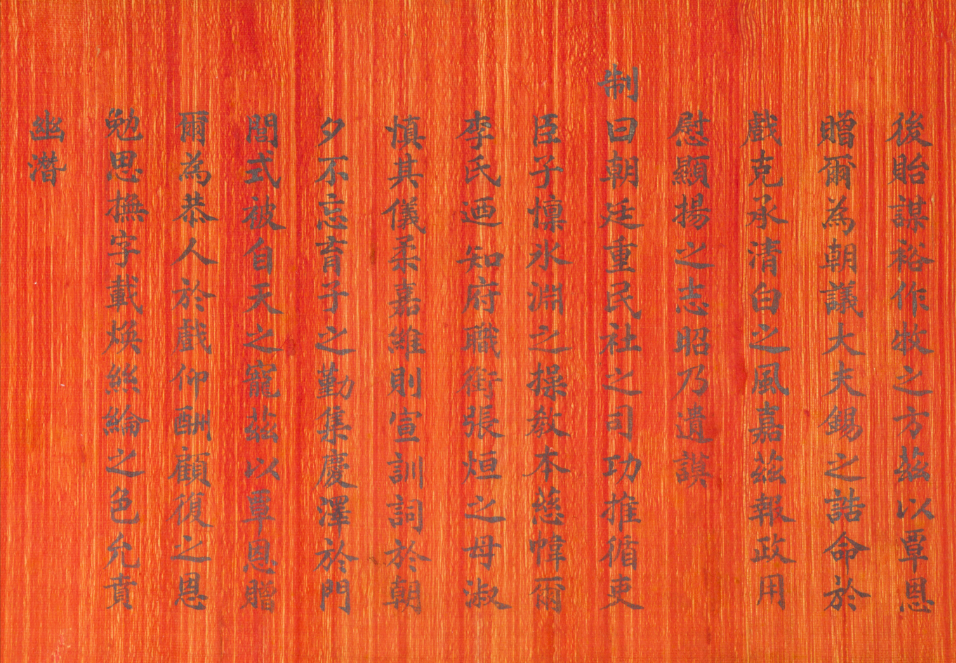 後貽謀裕作牧之方茲以覃恩
贈爾為朝議大夫錫之誥命於
戲克承清白之風嘉茲報政用
慰顯揚之志昭乃遺謨
制曰朝廷重民社之司功推循吏
臣子懍氷淵之操教本慈幃爾
李氏迺知府職銜張烜之母淑
慎其儀柔嘉維則宣訓詞於朝
夕不忘育子之勤集慶澤於門
閭式被自天之寵茲以覃恩贈
爾為恭人於戲仰酬顧復之恩
勉思撫字載煥絲綸之色允賁
幽潛